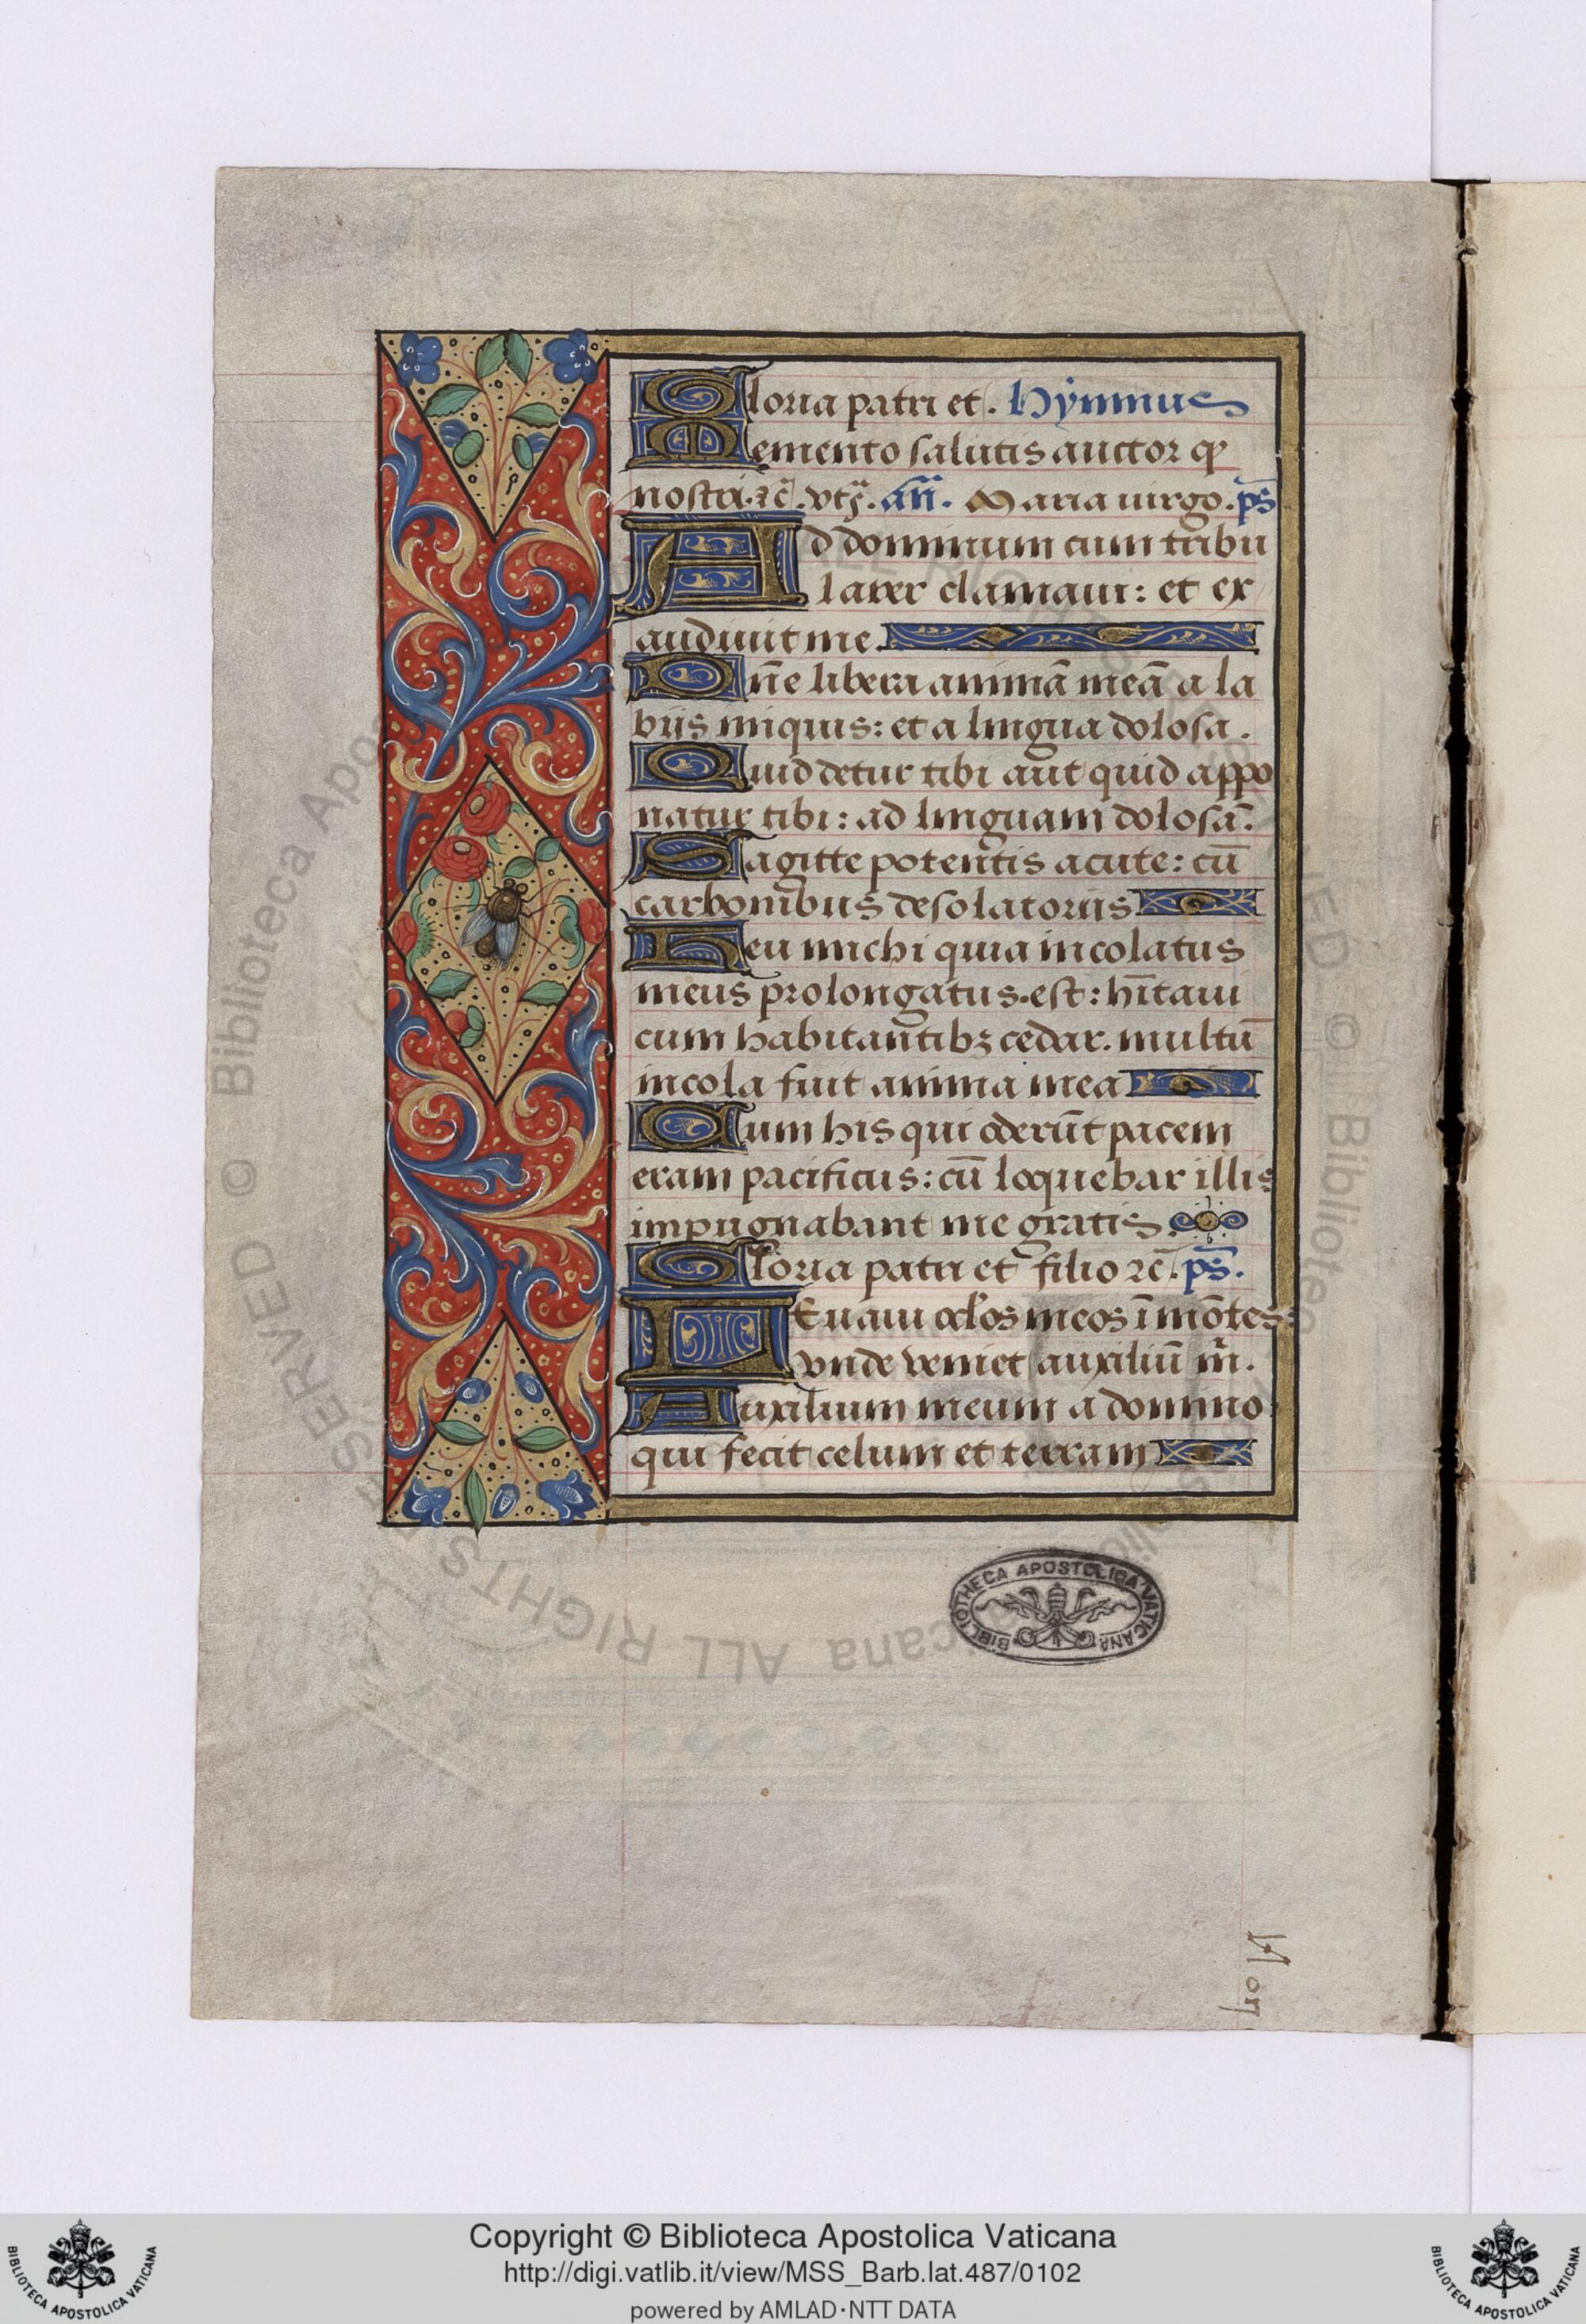 Gloria patri et. Hymnus
Memento salutis auctor ꝙ
nostri. ⁊c̃. vts̃. añ. Maria uirgo. ps̃
Ad dominum cum tribu
larer clamaui: et ex
audiuit me.
Dñe libera animã meã a la
biis iniquis: et a lingua dolosa.
Quid detur tibi aut quid appo
natur tibi: ad linguam dolosã.
Sagitte potentis acute: cũ
carbonibus desolatoriis
Heu michi quia incolatus
meus prolongatus est: hĩtaui
cum habitantibꝫ cedar. multũ
incola fuit anima mea
Cum his qui oderũt pacem
eram pacificus: cũ loquebar illis
impugnabant me gratis.
Gloria patri et filio ⁊c̃. ps̃.
LEuaui ocl'os meos ĩ mõtes:
vnde veniet auxiliũ m̃.
Auxilium meum a domino
qui fecit celum et terram
BIBLIOTHECA APOSTOLICA VATICANA
© Biblioteca Apostolica Vaticana ALL RIGHTS RESERVED
Copyright © Biblioteca Apostolica Vaticana
http://digi.vatlib.it/view/MSS_Barb.lat.487/0102
powered by AMLAD·NTT DATA
BIBLIOTECA APOSTOLICA VATICANA
BIBLIOTECA APOSTOLICA VATICANA